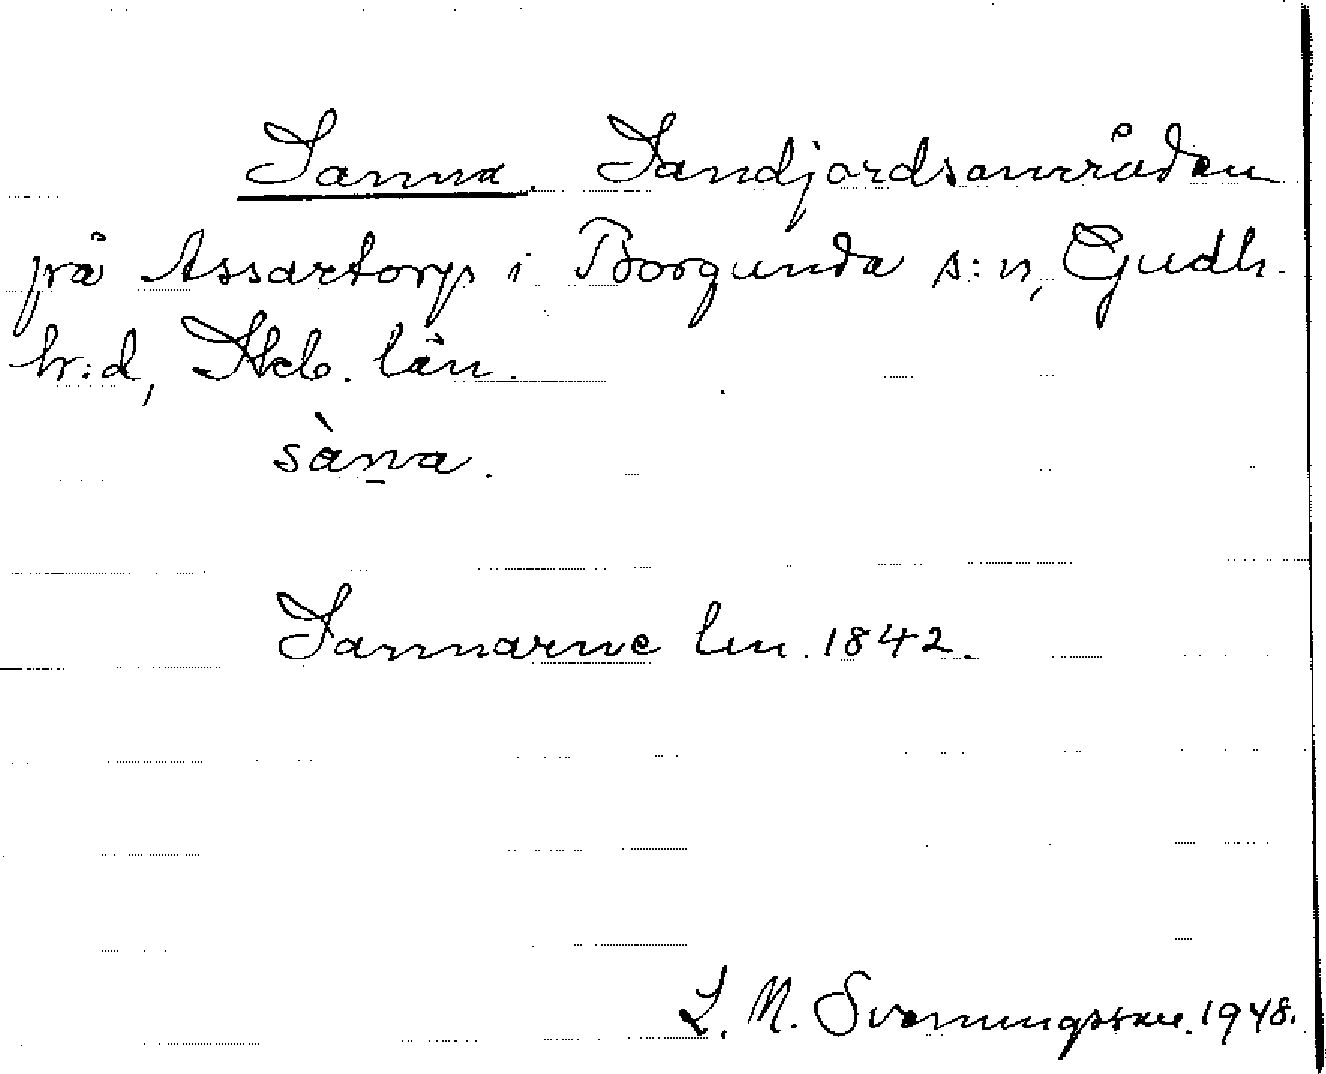 Sanna. Sandjordsområden
på Assartorp i Borgunda s:n, Gudh.
hr:d, Skb. län.
sàṉa.
Sannarne lm. 1842.
L. M. Svenningsson. 1948.